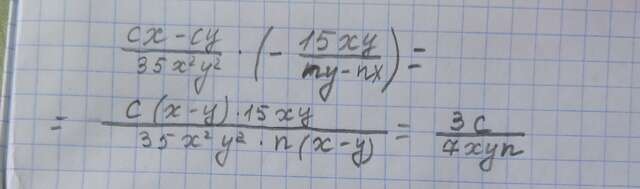 (cx - cy)/(35x²y²) · (- (15xy)/(ny - nx)) =
= (c(x-y) · 15xy)/(35x²y² · n(x-y)) = (3c)/(7xyn)